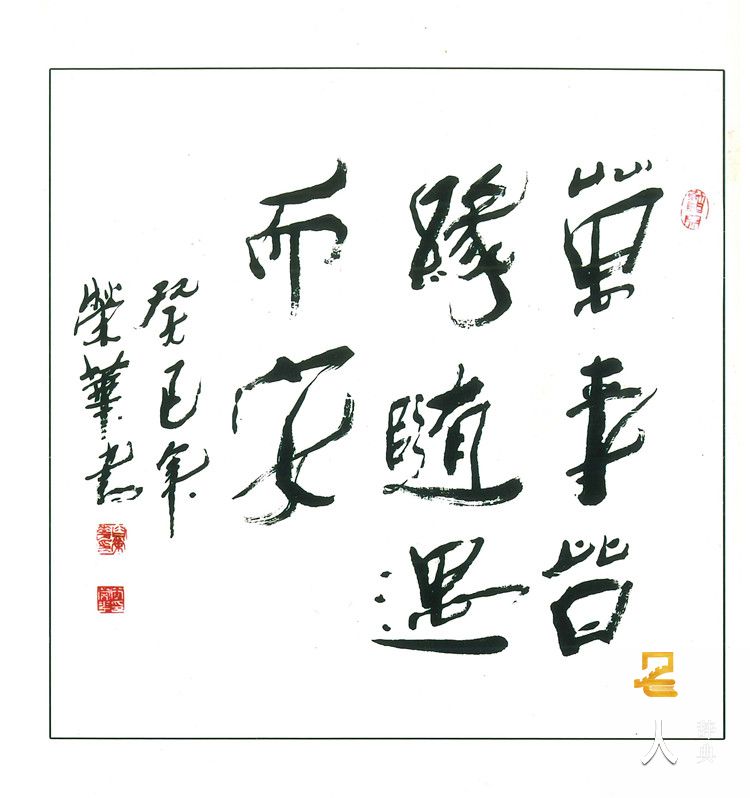 萬事皆
緣隨遇
而安
癸巳年
榮華書
人
辞典